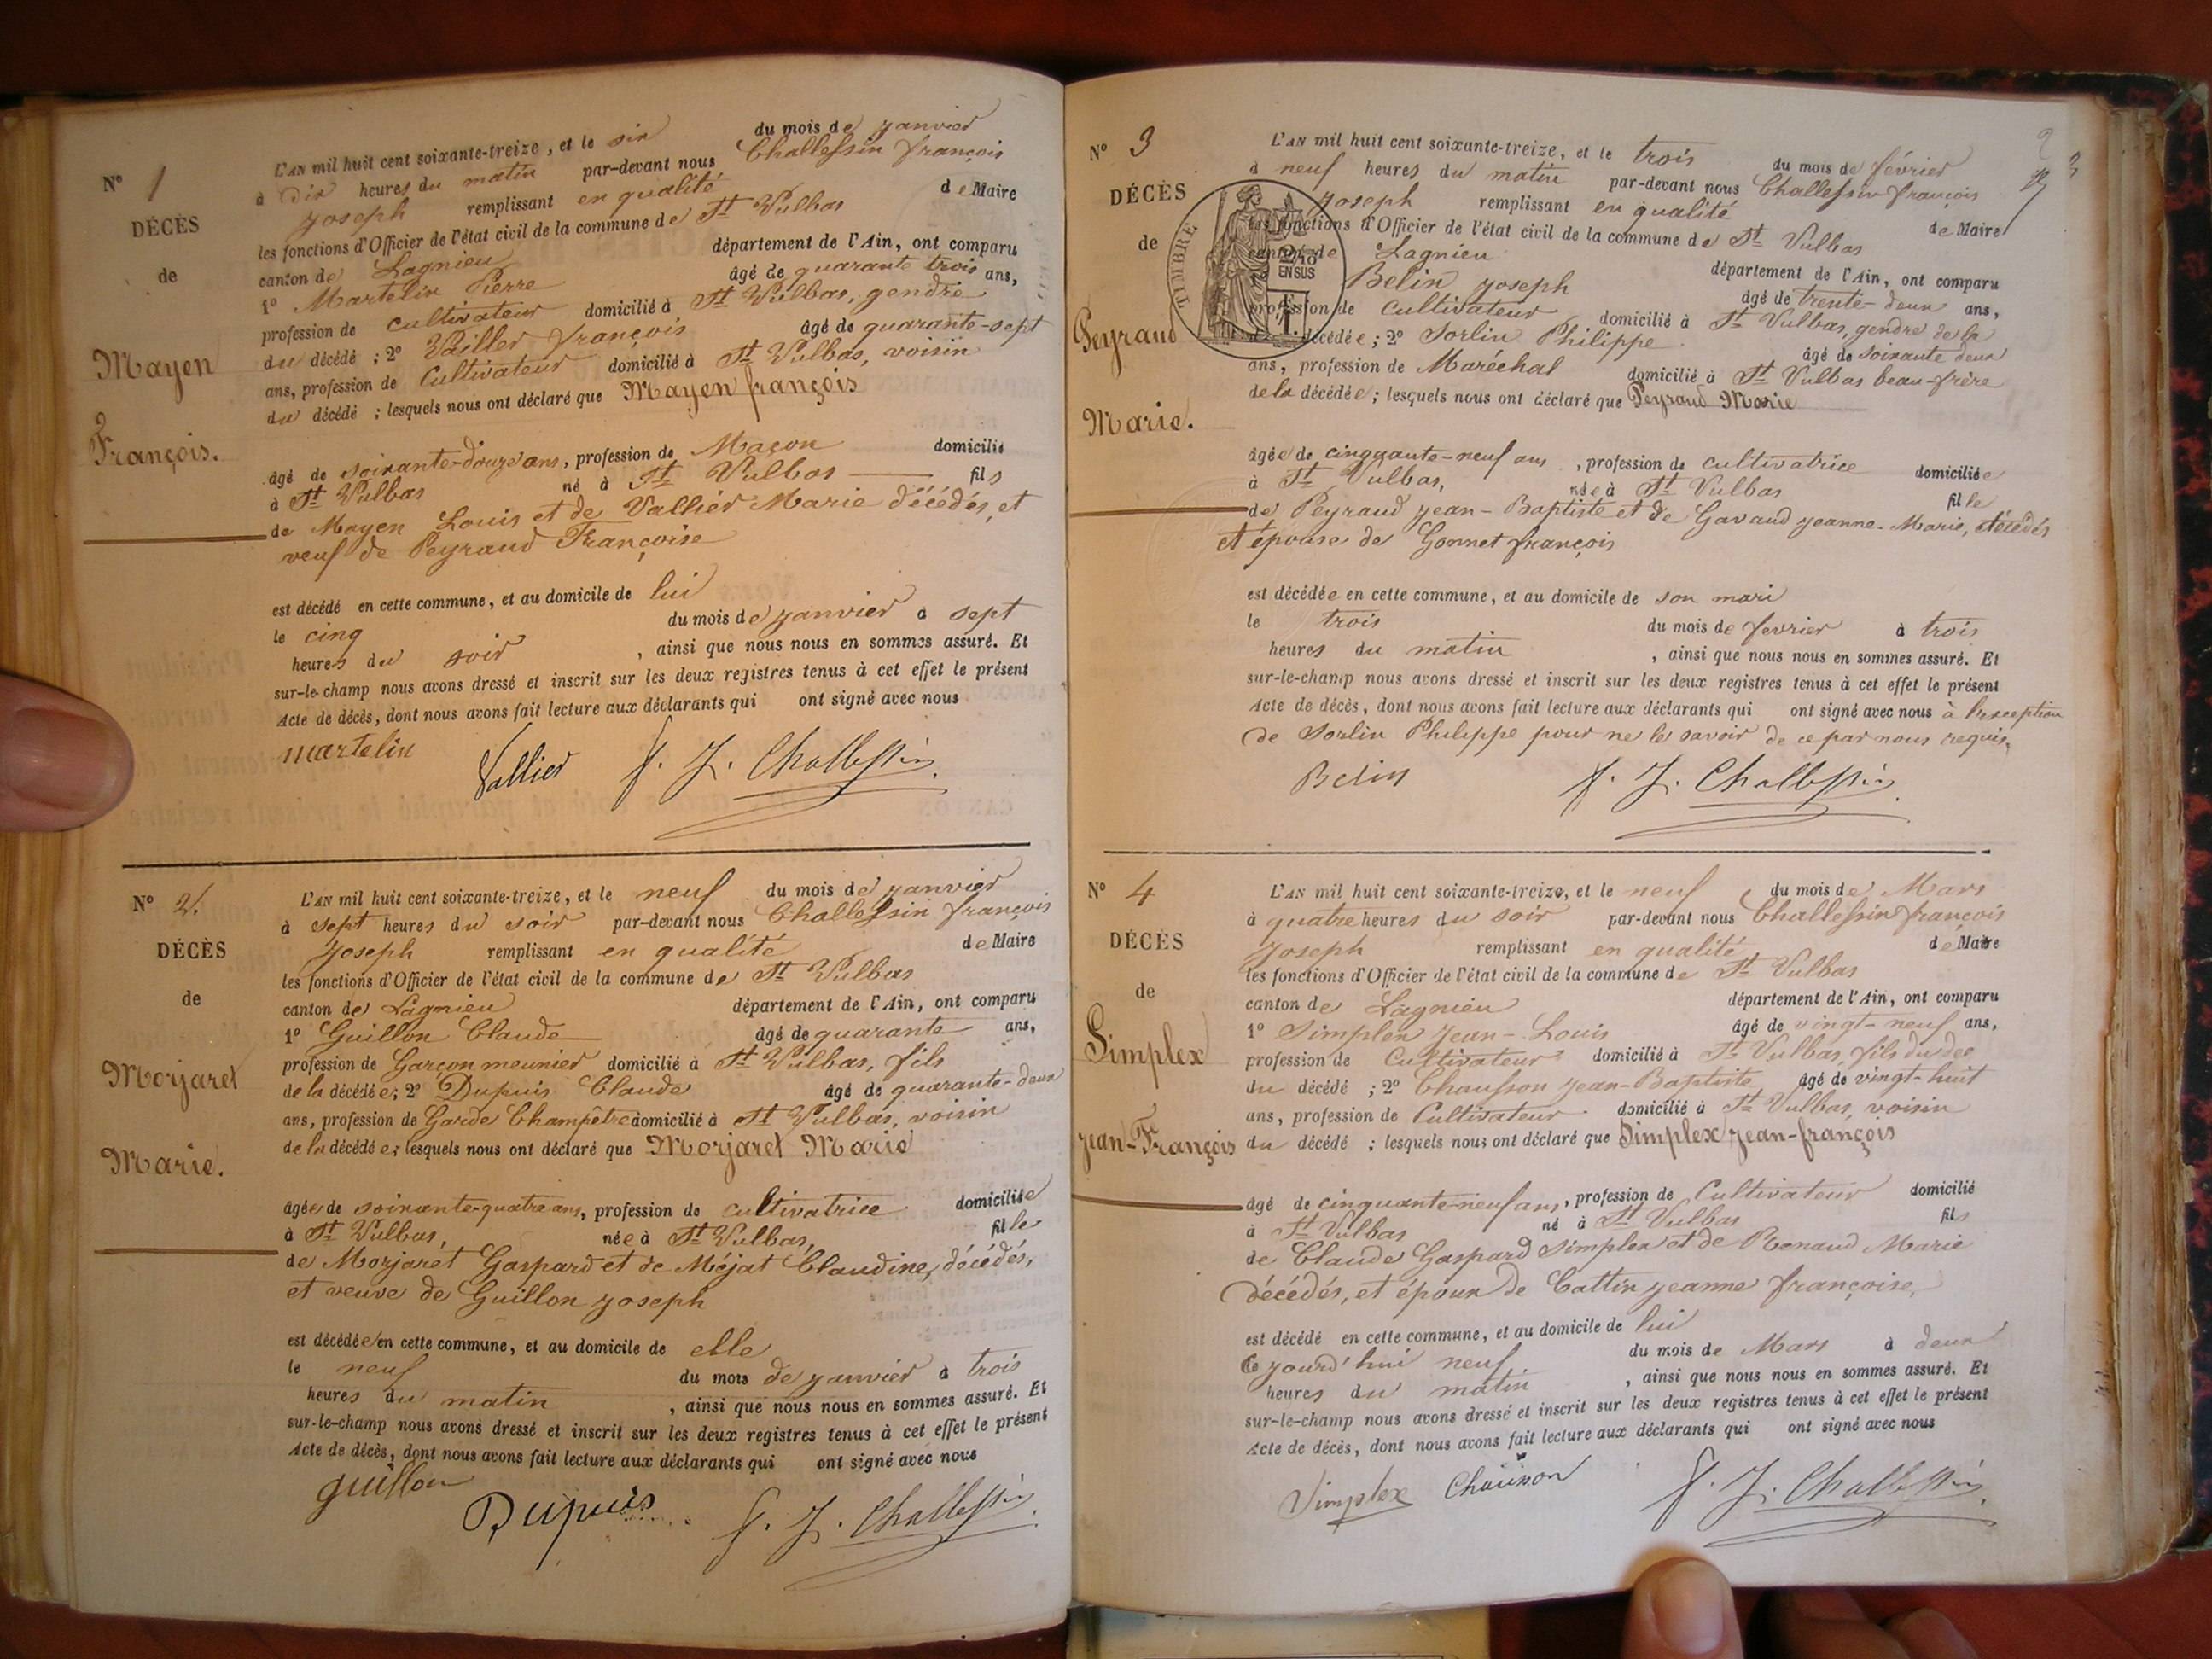 N° 1
DÉCÈS
de
Mayen
François.
L'AN mil huit cent soixante-treize, et le six du mois de janvier
à dix heures du matin par-devant nous Challessin françois
joseph remplissant en qualité de Maire
les fonctions d'Officier de l'état civil de la commune de St Vulbas
canton de Lagnieu département de l'Ain, ont comparu
1° Martelin Pierre âgé de quarante trois ans,
profession de cultivateur domicilié à St Vulbas, gendre
du décédé ; 2° Vallier françois âgé de quarante-sept
ans, profession de Cultivateur domicilié à St Vulbas, voisin
du décédé ; lesquels nous ont déclaré que Mayen françois
âgé de soixante-douze ans, profession de Maçon domicilié
à St Vulbas né à St Vulbas fils
de Mayen Louis et de Vallier Marie décédés, et
veuf de Peyraud Françoise
est décédé en cette commune, et au domicile de lui
le cinq du mois de janvier à sept
heures du soir , ainsi que nous nous en sommes assuré. Et
sur-le-champ nous avons dressé et inscrit sur les deux registres tenus à cet effet le présent
Acte de décès, dont nous avons fait lecture aux déclarants qui ont signé avec nous
martelin Vallier f. J. Challessin
N° 2.
DÉCÈS
de
Morjaret
Marie.
L'AN mil huit cent soixante-treize, et le neuf du mois de janvier
à sept heures du soir par-devant nous Challessin françois
joseph remplissant en qualité de Maire
les fonctions d'Officier de l'état civil de la commune de St Vulbas
canton de Lagnieu département de l'Ain, ont comparu
1° Guillon Claude âgé de quarante ans,
profession de Garçon meunier domicilié à St Vulbas, fils
de la décédée; 2° Dupuis Claude âgé de quarante-deux
ans, profession de Garde Champêtre domicilié à St Vulbas, voisin
de la décédée; lesquels nous ont déclaré que Morjaret Marie
âgée de soixante-quatre ans, profession de cultivatrice domiciliée
à St Vulbas, née à St Vulbas, fille
de Morjaret Gaspard et de Méjat Claudine, décédés,
et veuve de Guillon joseph
est décédée en cette commune, et au domicile de elle
le neuf du mois de janvier à trois
heures du matin , ainsi que nous nous en sommes assuré. Et
sur-le-champ nous avons dressé et inscrit sur les deux registres tenus à cet effet le présent
Acte de décès, dont nous avons fait lecture aux déclarants qui ont signé avec nous
guillon Dupuis f. J. Challessin
N° 3
DÉCÈS
de
Peyraud
Marie.
TIMBRE
2/10 EN SUS
L'AN mil huit cent soixante-treize, et le trois du mois de février
à neuf heures du matin par-devant nous Challessin françois
joseph remplissant en qualité de Maire
les fonctions d'Officier de l'état civil de la commune de St Vulbas
canton de Lagnieu département de l'Ain, ont comparu
Belin joseph âgé de trente-deux ans,
profession de cultivateur domicilié à St Vulbas, gendre de la
décédée; 2° Sorlin Philippe âgé de soixante deux
ans, profession de Maréchal domicilié à St Vulbas beau-frère
de la décédée; lesquels nous ont déclaré que Peyraud Marie
âgée de cinquante-neuf ans, profession de cultivatrice domiciliée
à St Vulbas, née à St Vulbas fille
de Peyraud jean-Baptiste et de Gavaud jeanne-Marie, décédés
et épouse de Gonnet françois
est décédée en cette commune, et au domicile de son mari
le trois du mois de fevrier à trois
heures du matin , ainsi que nous nous en sommes assuré. Et
sur-le-champ nous avons dressé et inscrit sur les deux registres tenus à cet effet le présent
Acte de décès, dont nous avons fait lecture aux déclarants qui ont signé avec nous à l'exception
de Sorlin Philippe pour ne le savoir de ce par nous requis.
Belin f. J. Challessin
N° 4
DÉCÈS
de
Simplex
jean-François
L'AN mil huit cent soixante-treize, et le neuf du mois de Mars
à quatre heures du soir par-devant nous Challessin françois
joseph remplissant en qualité de Maire
les fonctions d'Officier de l'état civil de la commune de St Vulbas
canton de Lagnieu département de l'Ain, ont comparu
1° Simplex jean-Louis âgé de vingt-neuf ans,
profession de Cultivateur domicilié à St Vulbas, fils du
du décédé ; 2° Chausson jean-Baptiste âgé de vingt-huit
ans, profession de Cultivateur domicilié à St Vulbas, voisin
du décédé ; lesquels nous ont déclaré que Simplex jean-françois
âgé de cinquante-neuf ans, profession de Cultivateur domicilié
à St Vulbas né à St Vulbas fils
de Claude Gaspard Simplex et de Renaud Marie
décédés, et époux de Cattin jeanne françoise,
est décédé en cette commune, et au domicile de lui
Ce jourd'hui neuf du mois de Mars à deux
heures du matin , ainsi que nous nous en sommes assuré. Et
sur-le-champ nous avons dressé et inscrit sur les deux registres tenus à cet effet le présent
Acte de décès, dont nous avons fait lecture aux déclarants qui ont signé avec nous
Simplex Chausson f. J. Challessin